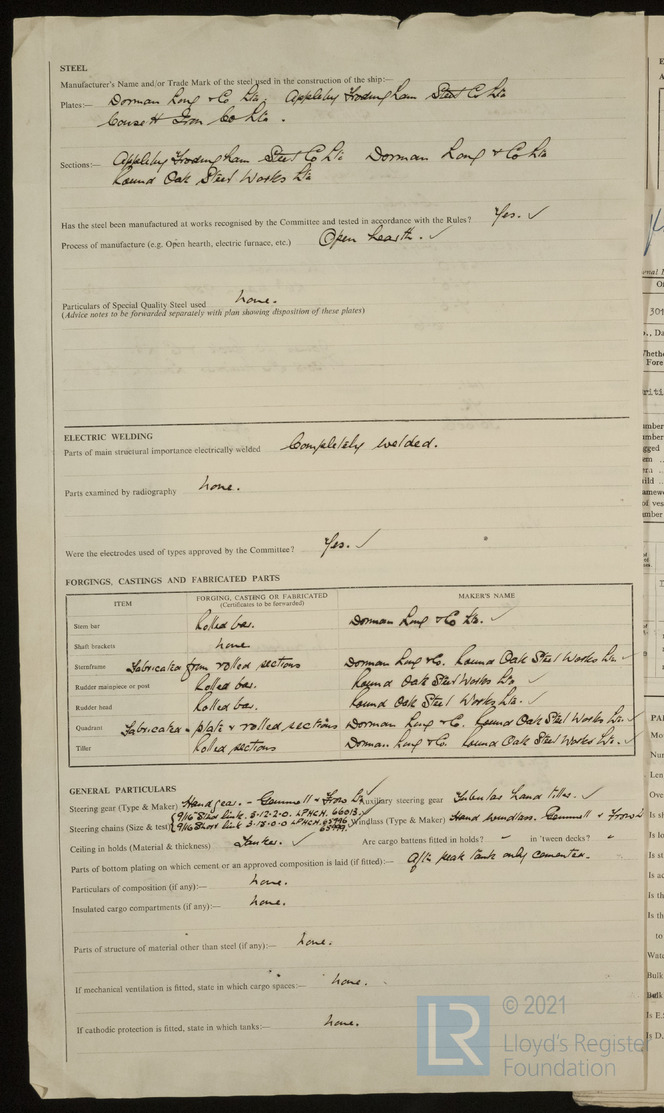 STEEL
Manufacturer's Name and/or Trade Mark of the steel used in the construction of the ship:—
Plates:— Dorman Long & Co Ltd. Appleby Frodingham Steel Co Ltd
Consett Iron Co Ltd.
Sections:— Appleby Frodingham Steel Co Ltd Dorman Long & Co Ltd
Round Oak Steel Works Ltd
Has the steel been manufactured at works recognised by the Committee and tested in accordance with the Rules? Yes. ✓
Process of manufacture (e.g. Open hearth, electric furnace, etc.) Open hearth. ✓
Particulars of Special Quality Steel used none.
(Advice notes to be forwarded separately with plan showing disposition of these plates)
ELECTRIC WELDING
Parts of main structural importance electrically welded Completely welded.
Parts examined by radiography none.
Were the electrodes used of types approved by the Committee? Yes. ✓
FORGINGS, CASTINGS AND FABRICATED PARTS
ITEM FORGING, CASTING OR FABRICATED (Certificates to be forwarded) MAKER'S NAME
Stem bar Rolled bar. Dorman Long & Co Ltd. ✓
Shaft brackets none
Sternframe Fabricated from rolled sections Dorman Long & Co. Round Oak Steel Works Ltd ✓
Rudder mainpiece or post Rolled bar. Round Oak Steel Works Ltd ✓
Rudder head Rolled bar. Round Oak Steel Works Ltd. ✓
Quadrant Fabricated - plate & rolled sections Dorman Long & Co. Round Oak Steel Works Ltd. ✓
Tiller Rolled sections Dorman Long & Co. Round Oak Steel Works Ltd. ✓
GENERAL PARTICULARS
Steering gear (Type & Maker) Hand gear. - Gemmell & Frow Ltd ✓ Auxiliary steering gear Tubular hand tiller. ✓
Steering chains (Size & test) 9/16 Stud link. 3-12-2-0. LPHCH. 66013. ✓
9/16 Short link 3-15-0-0 LPHCH. 65996 65999. Windlass (Type & Maker) Hand windlass. Gemmell & Frow
Ceiling in holds (Material & thickness) Tanker. ✓ Are cargo battens fitted in holds? " in 'tween decks? "
Parts of bottom plating on which cement or an approved composition is laid (if fitted):— Aft peak tank only cemented.
Particulars of composition (if any):— none.
Insulated cargo compartments (if any):— none.
Parts of structure of material other than steel (if any):— none.
If mechanical ventilation is fitted, state in which cargo spaces:— none.
If cathodic protection is fitted, state in which tanks:— none.
LR
© 2021
Lloyd's Register
Foundation